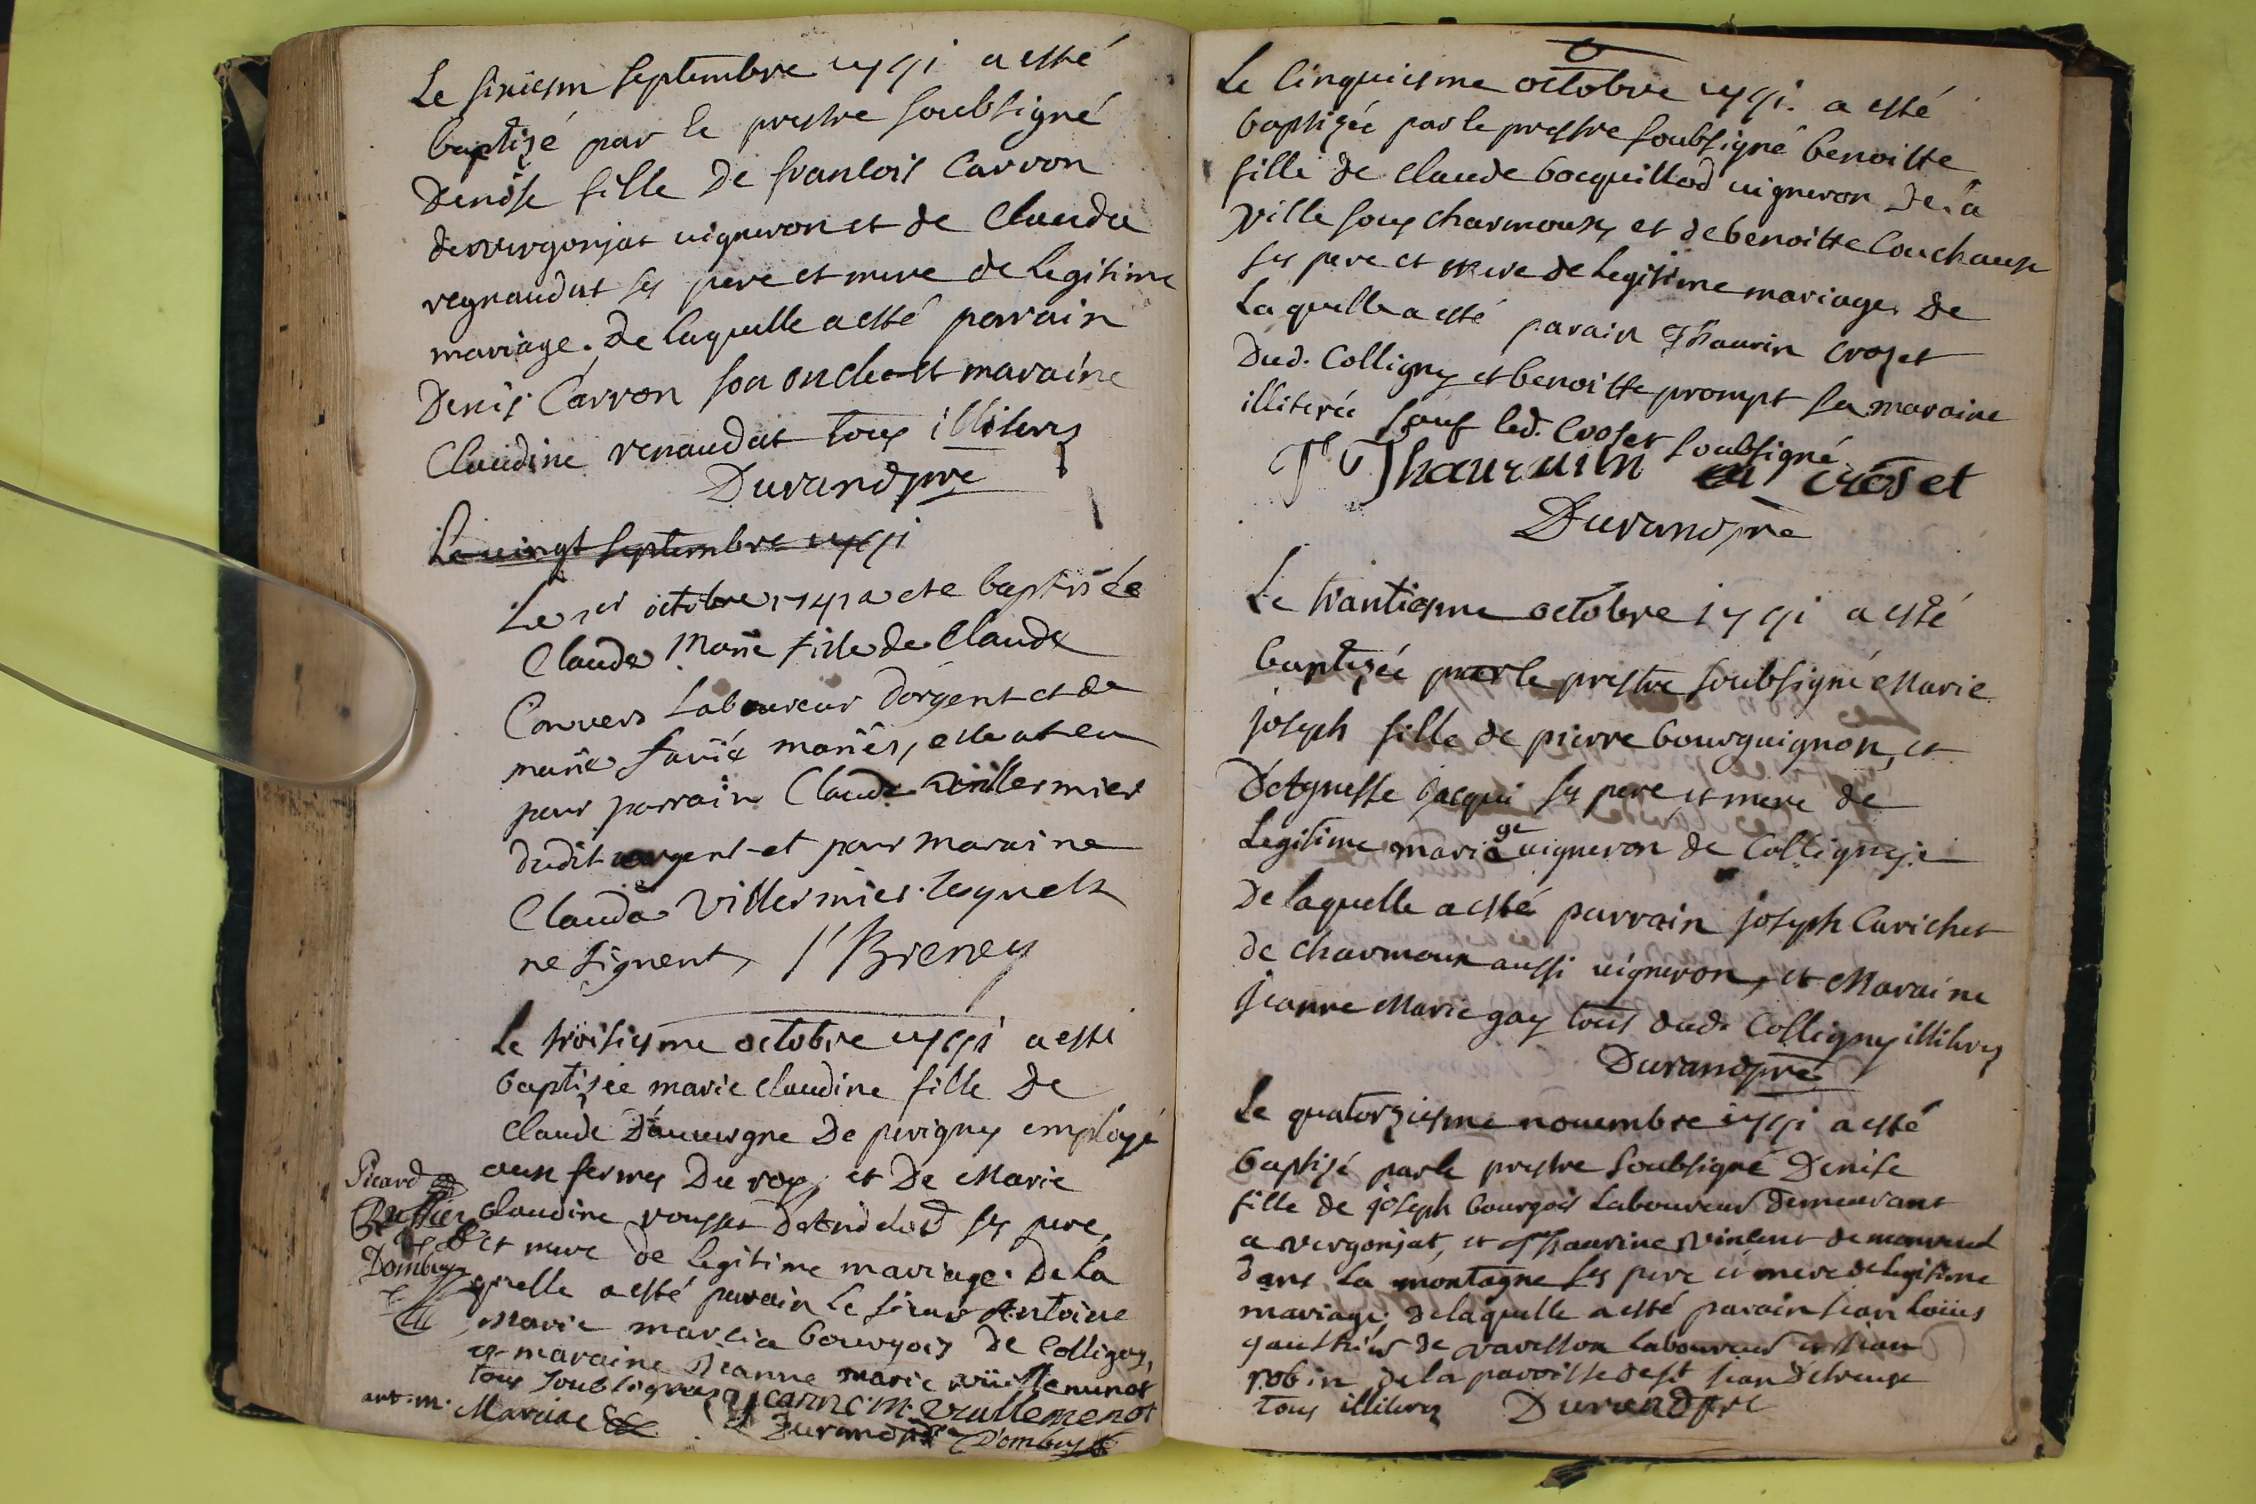 Le sixiesm septembre 1741 a esté
baptizé par le prestre soubsigné
Denise fille De francois Carron
de vergonjat uigneron et de Clauda
regnaudat ses pere et mere de legitime
mariage. De laquelle a esté parrain
Denis Carron son oncle et maraine
Claudine renaudat tous illiterez
Durand pre
Le uingt septembre 1741
Le 1er octobre 1741 a ete baptisée
Claude Marie fille de Claude
Convers Laboureur Dorgent et de
marie mariés, elle at eu
pour parrain Claude Villermier
dudit orgent et pour maraine
Clauda Villermier lesquels
ne signent, Bieney
Le troisiesme octobre 1741 a esté
baptizée marie claudine fille De
Claude D'auuergne De perigny employé
aux fermes Du roy, et De Marie
Claudine rousset d'Andelod ses pere,
et mere de legitime mariage. De la
quelle a esté parrain le sieur Antoine
Marie marcia bourgois de Colligny,
et maraine Jeanne marie vuillemenot
tous soubsignés Jeanne m. vullemenot
Picard
Dombey
ant. m. Marciae Durand pre Dombey
Le Cinquiesme octobre 1741. a esté
baptizée par le prestre soubsigné benoitte
fille de Claude bocquillod uigneron De la
ville sous charmoux, et de benoitte Couchoux
ses pere et mere de legitime mariage. De
Laquelle a esté parain Thaurin Crozet
Dud. Colligny et benoitte prompt sa maraine
illiterée sauf led. Crozet soubsigné
Thauruin croset
Durand pre
Le trantiesme octobre 1741 a esté
baptizée par le prestre soubsigné Marie
joseph fille de pierre bourguignon, et
D'Agnesse Jacqui ses pere et mere de
Legitime mariage uigneron de Colligny.
De laquelle a esté parrain joseph Curichet
de charmoux aussi uigneron, et Maraine
Jeanne Marie gay tous dud. Colligny illiterez
Durand pre
Le quatorziesme nouembre 1741 a esté
baptizé par le prestre soubsigné Denise
fille de joseph bourgois Laboureur demeurant
a vergonjat, et Thaurine vincent de
dans la montagne ses pere et mere de legitime
mariage; de laquelle a esté parain jean louis
gauthier de laboureur et jean
robin de la paroisse de st jean d'etreux
tous illiterez Durand pre